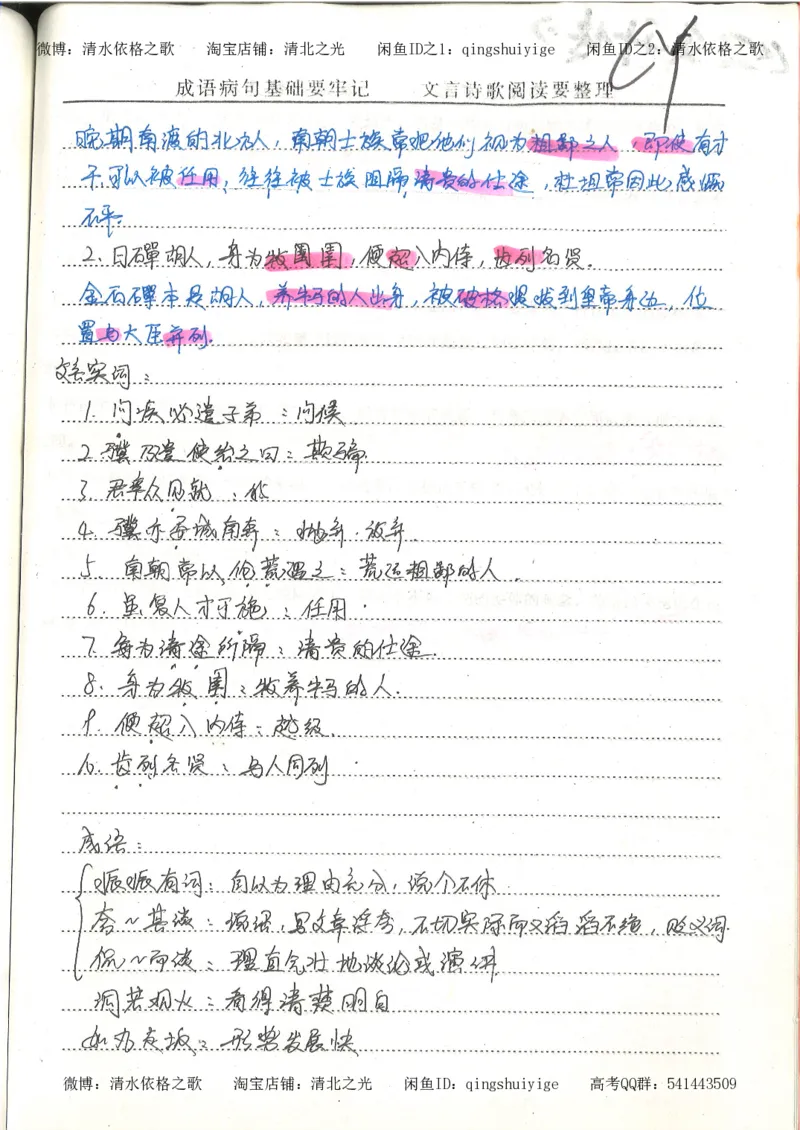 微博：清水依格之歌 淘宝店铺：清北之光 闲鱼ID之1：qingshuiyige 闲鱼ID之2：清水依格之歌
CY
成语病句基础要牢记 文言诗歌阅读要整理
晚期南渡的北方人，南朝士族常把他们视为粗鄙之人，即使有才
干可以被任用，往往被士族阻隔清贵的仕途，杜坦常因此感慨
不平。
2、日磾胡人，身为牧圉，便超入内侍，齿列名贤。
金日磾本是胡人，养牛马的人出身，被破格提拔到皇帝身边，位
置与大臣并列。
文言实词：
1、问疾必遣子弟：问候
2、骥乃遣使绐之曰：欺骗
3、君率众见就：我
4、骥亦弃城南奔：抛弃·放弃
5、南朝常以伧荒遇之：荒远粗鄙的人
6、虽复人才可施：任用
7、每为清途所隔：清贵的仕途
8、身为牧圉：牧养牛马的人
9、便超入内侍：越级
10、齿列名贤：与人同列
成语：
振振有词：自以为理由充分，说个不休
夸～其谈：说话，写文章浮夸，不切实际而又滔滔不绝，贬义词
侃～而谈：理直气壮地谈论或演讲
洞若观火：看得清楚明白
如丸走坂：形势发展快
微博：清水依格之歌 淘宝店铺：清北之光 闲鱼ID：qingshuiyige 高考QQ群：541443509